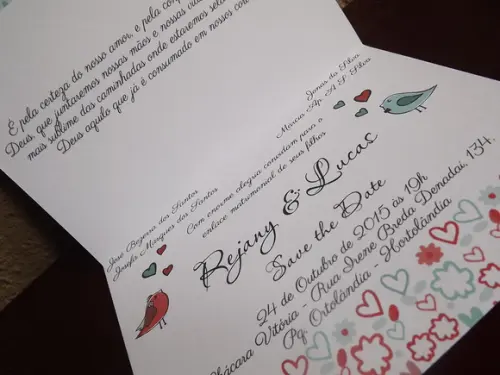 É pela certeza do nosso amor, e pela
Deus, que juntaremos nossas mãos e nossas
mais sublime das caminhadas onde estaremos
Deus aquilo que já é consumado em nossos
José Bezerra dos Santos
Josefa Marques dos Santos
Jonas da Silva
Márcia Ap. A. S. Silva
Com enorme alegria convidam para o
enlace matrimonial de seus filhos
Rejany & Lucas
Save the Date
24 de Outubro de 2015 às 19h
Chácara Vitória - Rua Irene Breda Denadai, 134.
Pq. Ortolândia - Hortolândia